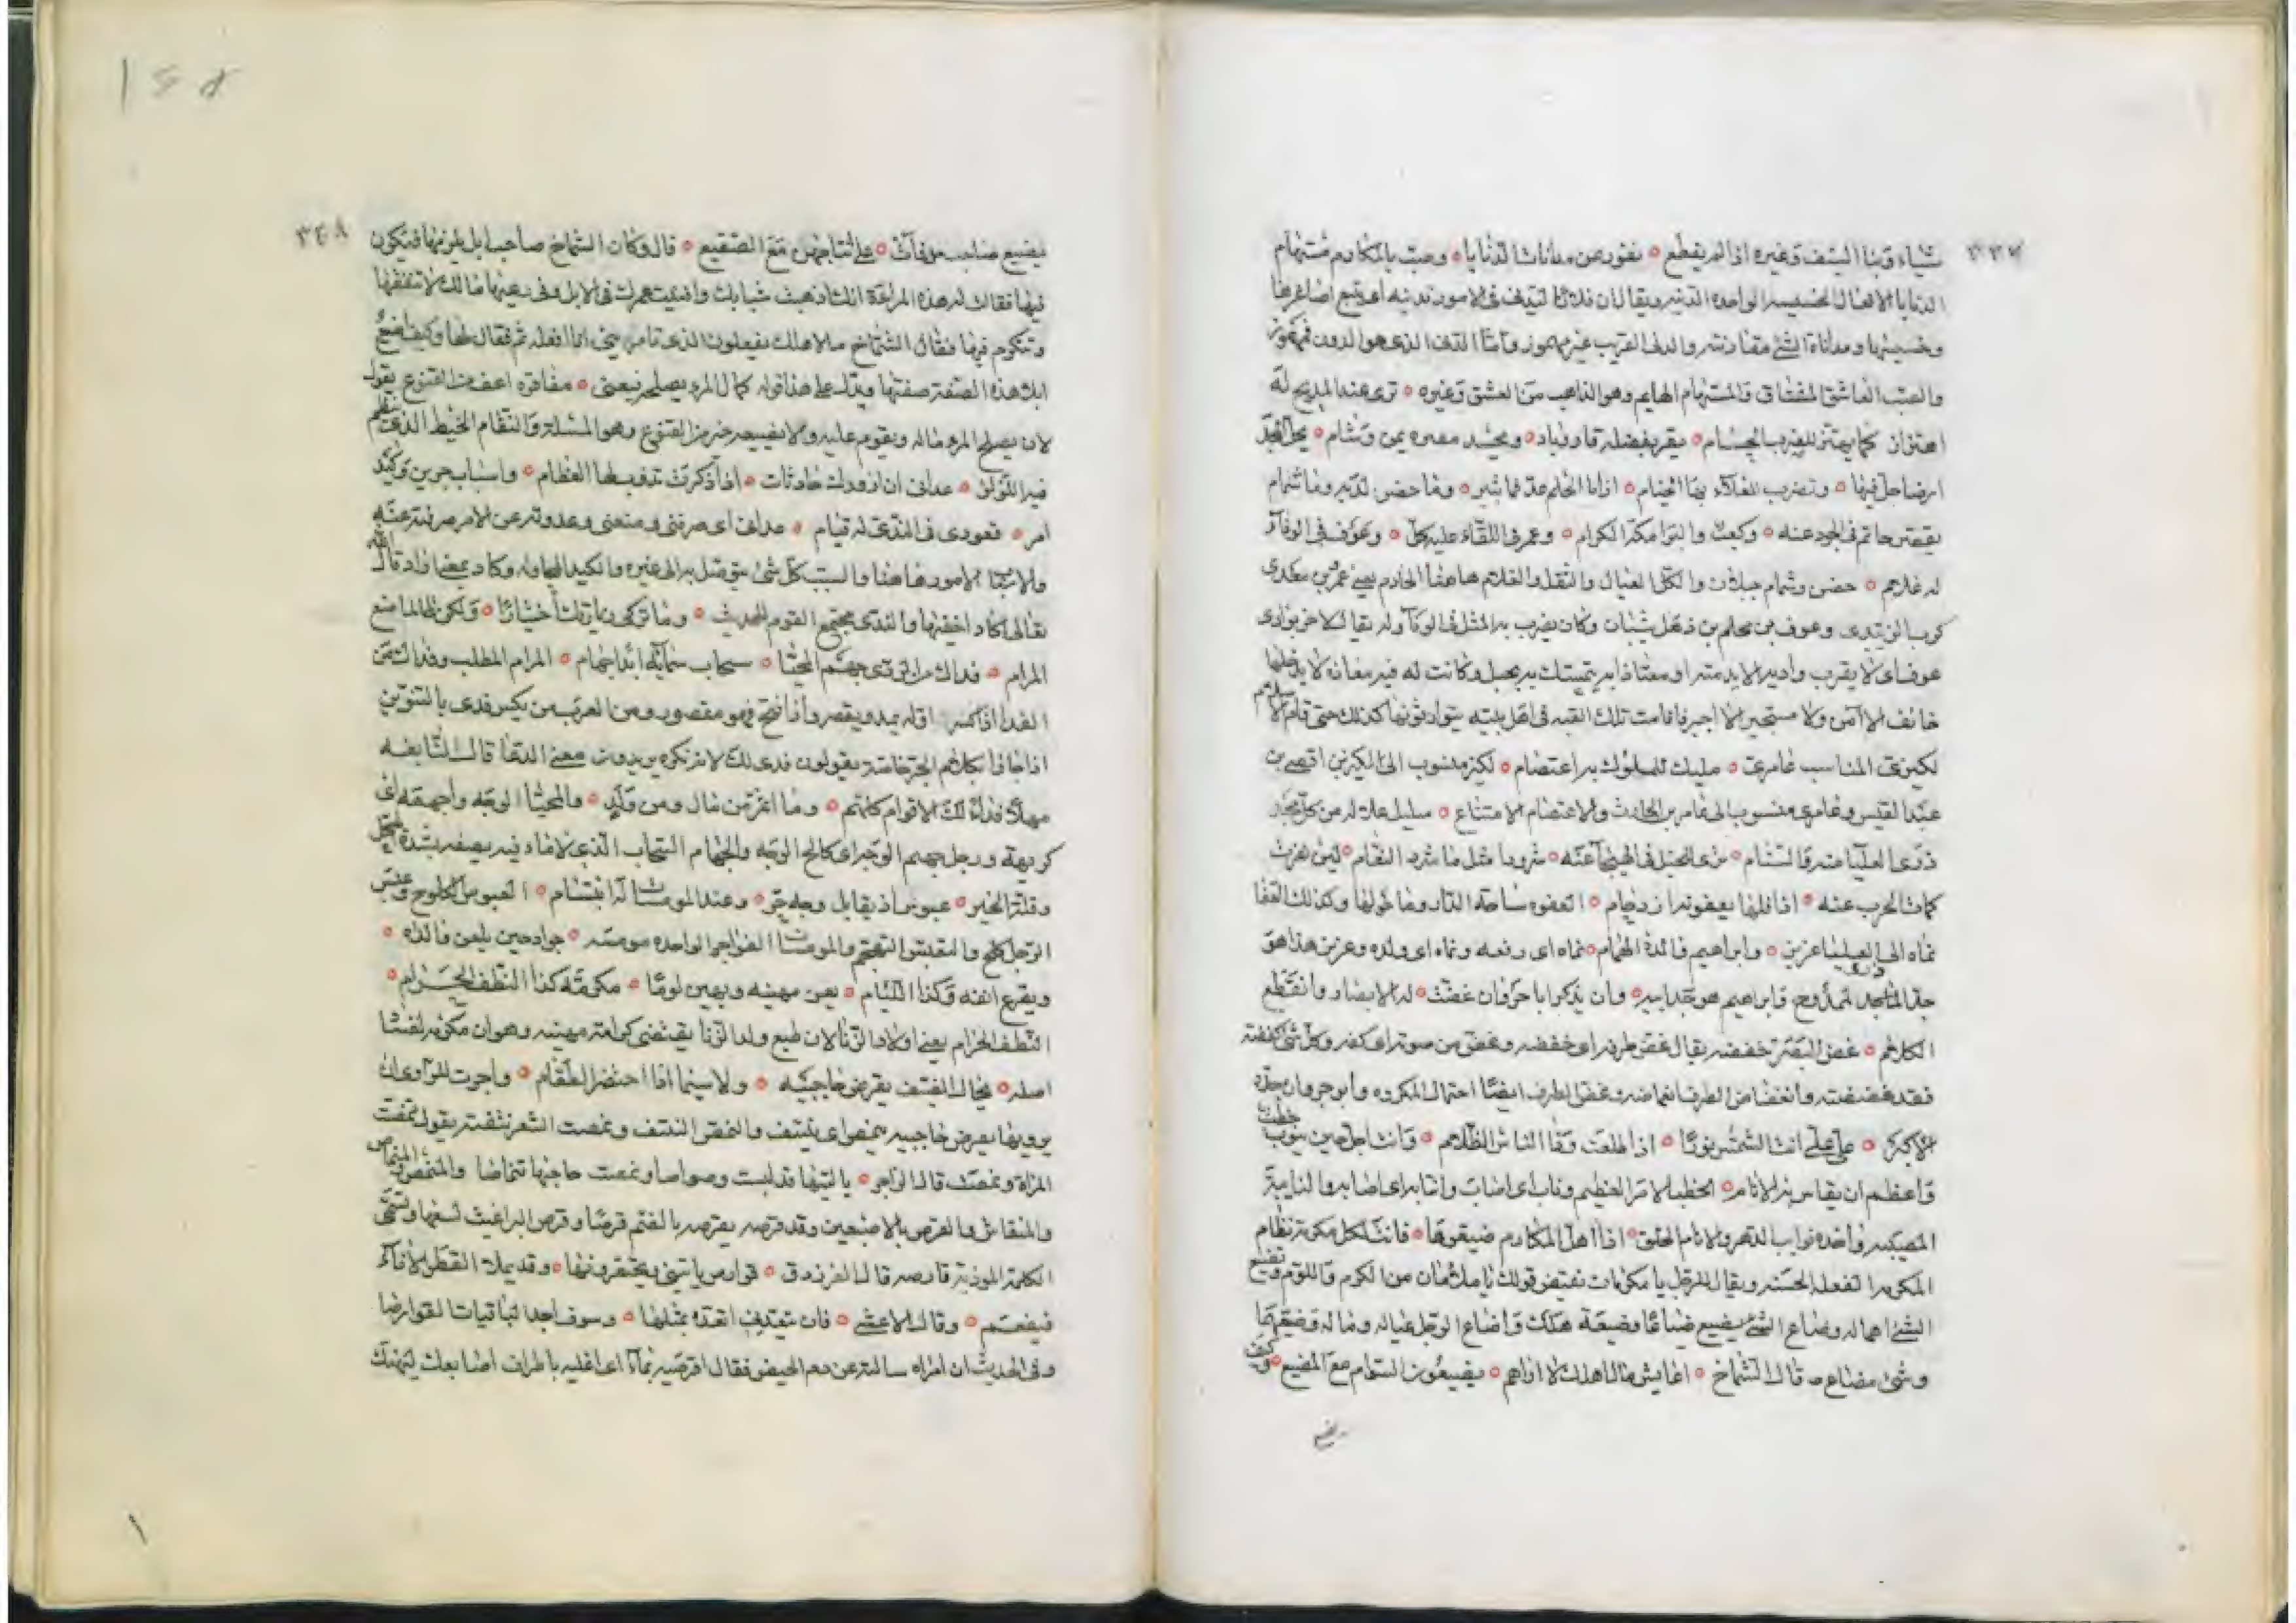 ٣٣٧
شباه ونبا السيف وغيره اذا لم يقطع ه نفور من مدانات الدنايا ه وصب بالمكارم مستهام
الدنايا الافعال الخسيسه الواحده الدنيه ويقال ان فلانا ليدني في الامور تدنيه اى يتبع اصاغرها
وخسيسها ومداناة الشئ مقاربته والدنى القريب غير مهموز واما الدنى الذى هو الدون فمهموز
والصب العاشق المشتاق والمستهام الهايم وهو الذاهب من العشق وغيره ه ترى عند المديح له
اهتزاز كما يهتز للضرب الحسام ه يقر بفضله قار وباد ه ويحسد مصره يمن وشام ه يحل المجد
ارضا حل فيها ه وتضرب للعلاء بها الخيام ه اذا ما الحلم عد فما ثبير ه وما حضن لديه وما شمام
يقصر حاتم في الجود عنه ه وكعب والبرامكة الكرام ه وعمرو في اللقاء عليه كل ه وعوف في الوفاء
له غلام ه حضن وشمام جبلان والكل العيال والثقل والغلام هاهنا الخادم يعني عمرو بن معدى
كرب الزبيدى وعوف بن محلم بن ذهل شيبان وكان يضرب به المثل في الوفاء وله يقال لا حر بوادى
عوف اى لا يقرب واديه الا بذمته او معتاذا به يتمسك به بحبل وكانت له فيه معاذه لا يدخلها
خائف الا امن ولا مستجير الا اجير فاقامت تلك القبه في اهل بيته يتوارثونها كذلك حتى قام الاسلام
لكيزى المناسب عامرى ه مليك للملوك به اعتصام ه لكيز منسوب الى لكيز بن افصى بن
عبد القيس وعامرى منسوب الى عامر بن الحارث والاعتصام الامتناع ه سليل علا له من كل مجد
ذرى العليا منه والسنام ه ترى الخيل في الهيجا عنه ه شرودا مثل ما شرد النعام ه لئن هربت
كماة الحرب عنه ه اذا فلها بعفوته ازدحام ه العفوه ساحة الدار وما حولها وكذلك العقا
نماه الى العليا عزيز ه وابراهيم فائدة الهمام ه نماه اى رفعه ونماه اى ولده وعزيز هذا هو
جد الماجد الممدوح وابراهيم هو جد ابيه ه وان يذكر ابا جروان غضت ه له الابصار وانقطع
الكلام ه غض البصر خفضه يقال غض طرفه اى خفضه وغض من صوته اى كفه وكل شئ كففته
فقد غضضته وانغضاض الطرف انغماضه وغض الطرف ايضا احتمال المكروه وابو جروان جده
الاكبر ه على على انت الشمس نورا ه اذا طلعت وفا الناس الظلام ه وانت اجل حين ينوب خطب
واعظم ان يقاس به الانام ه الخطب الامر العظيم وناب اى اصاب وانتابه اى اصابه والنايبة
المصيبه واحده نوايب الدهر والانام الخلق ه اذا اهل المكارم ضيعوها ه فانت لكل مكرمة نظام
المكرمه الفعله الحسنه ويقال للرجل يا مكرمان نقيض قولك يا ملأمان من الكرم واللؤم وتضييع
الشئ اهماله وضاع الشئ يضيع ضياعا وضيعة هلك واضاع الرجل عياله وماله وضيعهما
وشئ مضاع ه قال الشماخ ه اعايش ما لاهلك لا اراهم ه يضيعون السوام مع المضيع ه وكيف
يضيع
٣٤٨
يضيع صاحب مدفآت ه على اثباجهن مع الصقيع ه قال وكان الشماخ صاحب ابل يلزمها فيكون
فيها فقالت له هذه المرأة انك اذهبت شبابك وافنيت عمرك في الابل وفى رعيها مالك لا تنفقها
وتتكرم فيها فقال الشماخ ما لاهلك يفعلون الذى تامرينى انا افعله ثم فقال لها وكيف اضيع
ابل هذه الصفة صفتها ويدل على هذا قوله كمال المرء يصلحه فيغنى ه مفاقره اعف من القنوع يقول
لان يصلح المرء ماله ويقوم عليه ولا يضيعه خير من القنوع وهو المسئلة والنظام الخيط الذى ينظم
فيه اللؤلؤ ه عدانى ان ازورك حادثات ه اذا ذكرت تذوب لها العظام ه واسباب جرين وكيد
امر ه قعودى في الندى له قيام ه عدانى اى صرفنى ومنعنى وعدوته عن الامر صرفته عنه
والاسباب الامور هاهنا والسبب كل شئ يتوصل به الى غيره والكيد المحاوله وكاد بمعنى اراد قال الله
تعالى اكاد اخفيها والندى مجتمع القوم للحديث ه وما تركى زيارتك اختيارا ه ولكن طالما منع
المرام ه فداك من الردى جهم المحيا ه سحاب سمائه ابدا جهام ه المرام المطلب وفداك من
الفدا اذا كسر اوله يمد ويقصر واذا فتح فهو مقصور ومن العرب من يكسر فدى بالتنوين
اذا جاور كلام الجر خاصة يقولون فدى لك لانه نكره يريدون معنى الدعا قال النابغه
مهلا فداء لك الاقوام كلهم ه وما اثمر من مال ومن ولد ه والمحيا الوجه واجهمه اى
كريهة ورجل جهم الوجه اى كالح الوجه والجهام السحاب الذى لا ماء فيه يصفه بشدة البخل
وقلة الخير ه عبوس اذ يقابل وجه حر ه وعند المومسات له ابتسام ه العبوس الكلوح وعبس
الرجل كلح والتعبس التجهم والمومسات الفواجر الواحده مومسه ه جواد حين يلعن والداه ه
ويقرع انفه وكذا اللئام ه يعز مهينه ويهين لوما ه مكرمه كذا النطف الحرام ه
النطف الحرام يعنى اولاد الزنا لان طبع ولد الزنا يقتضى كرامة مهينه وهوان مكرمه لخساسة
اصله ه يخال الضيف يقرض حاجبيه ه ولا سيما اذا احتضر الطعام ه واجوت للراوى ان
يرويها يقرض حاجبيه ينمص اى ينتف والنمص النتف ونمصت الشعر نتفته يقول نمصت
المراة ونمصت قال الراجز ه يا ليتها قد لبست وصواصا ونمصت حاجبها تنماصا والمنمص والمنماص
والمنقاش والقرص بالاصبعين وقد قرصه يقرصه بالضم قرصا وقرص البراغيث لسعها وتسمى
الكلمة الموذية قارصه قال الفرزدق ه قوارص ياتينى ويحتقرونها ه وقد يملأ القطر الاناء
فيفعم ه وقال الاعشى ه فان تتعدنى اتعدك بمثلها ه وسوف اجد الباقيات القوارصا
وفى الحديث ان امراه سالته عن دم الحيض فقال اقرصيه بماء اى اغليه باطراف اصابعك